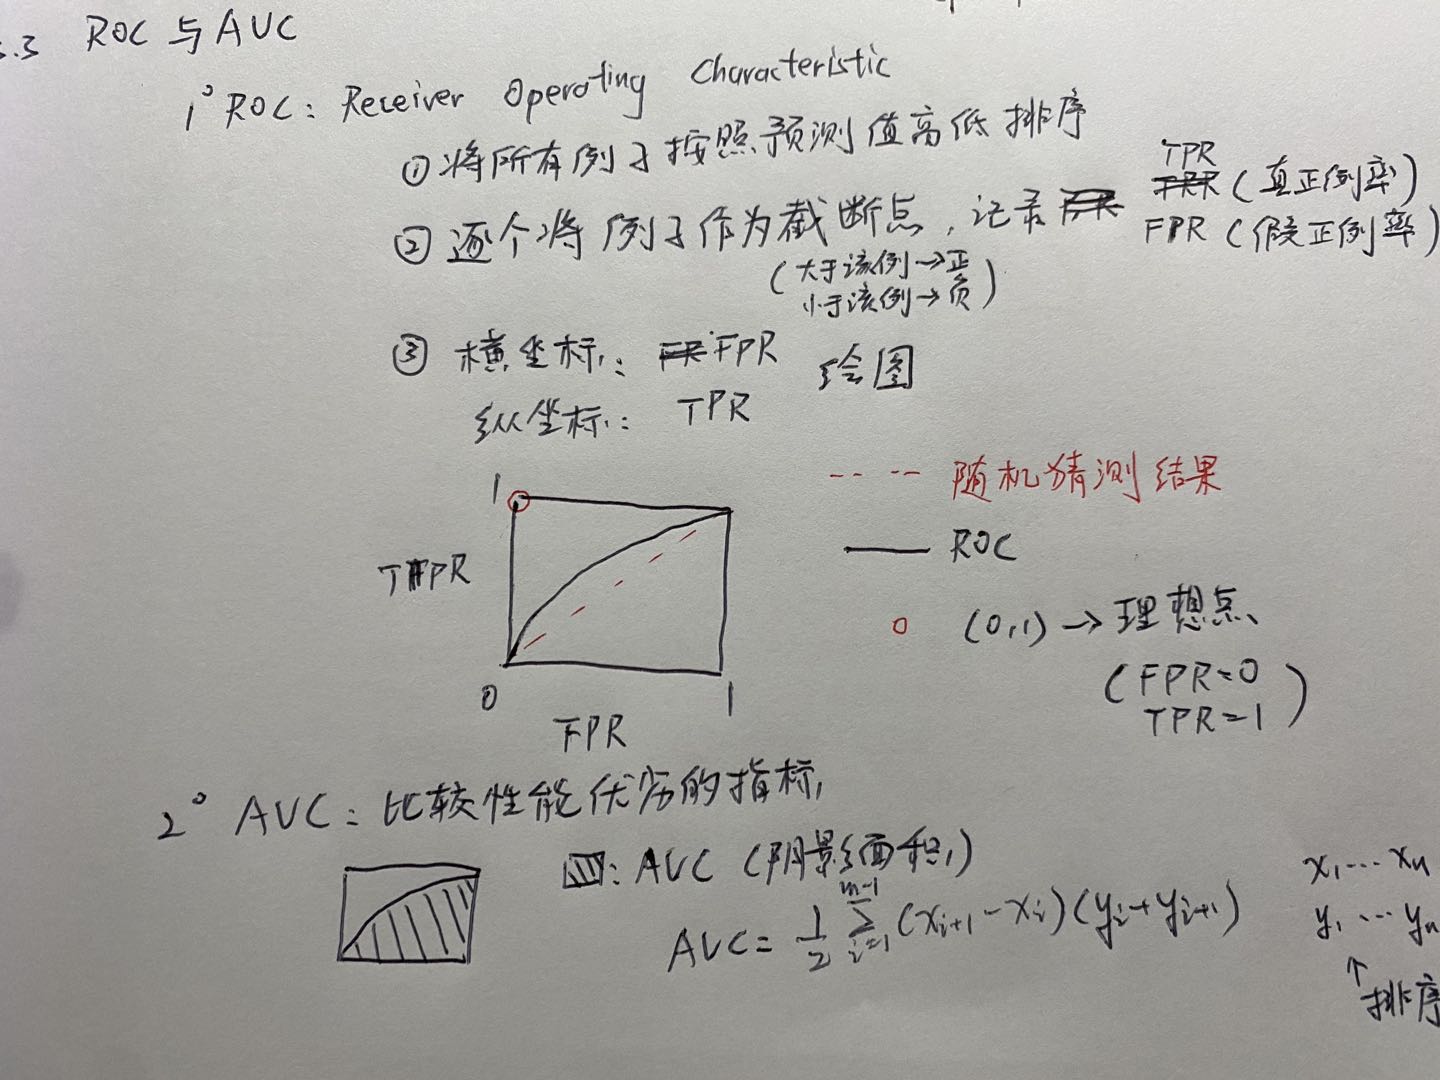 .3 ROC与AUC
1° ROC: Receiver Operating Characteristic
①将所有例子按照预测值高低排序
②逐个将例子作为截断点,记录 TPR(真正例率)
FPR(假正例率)
(大于该例→正
小于该例→负)
③横坐标: FPR 绘图
纵坐标: TPR
---- 随机猜测结果
—— ROC
○ (0,1)→理想点
(FPR=0
TPR=1)
1
TPR
0
1
FPR
2° AUC: 比较性能优劣的指标
: AUC (阴影面积)
AUC = 1/2 ∑_{i=1}^{m-1} (x_{i+1} - x_i)(y_i + y_{i+1})
x₁ ⋯ xₙ
y₁ ⋯ yₙ
↑
排序